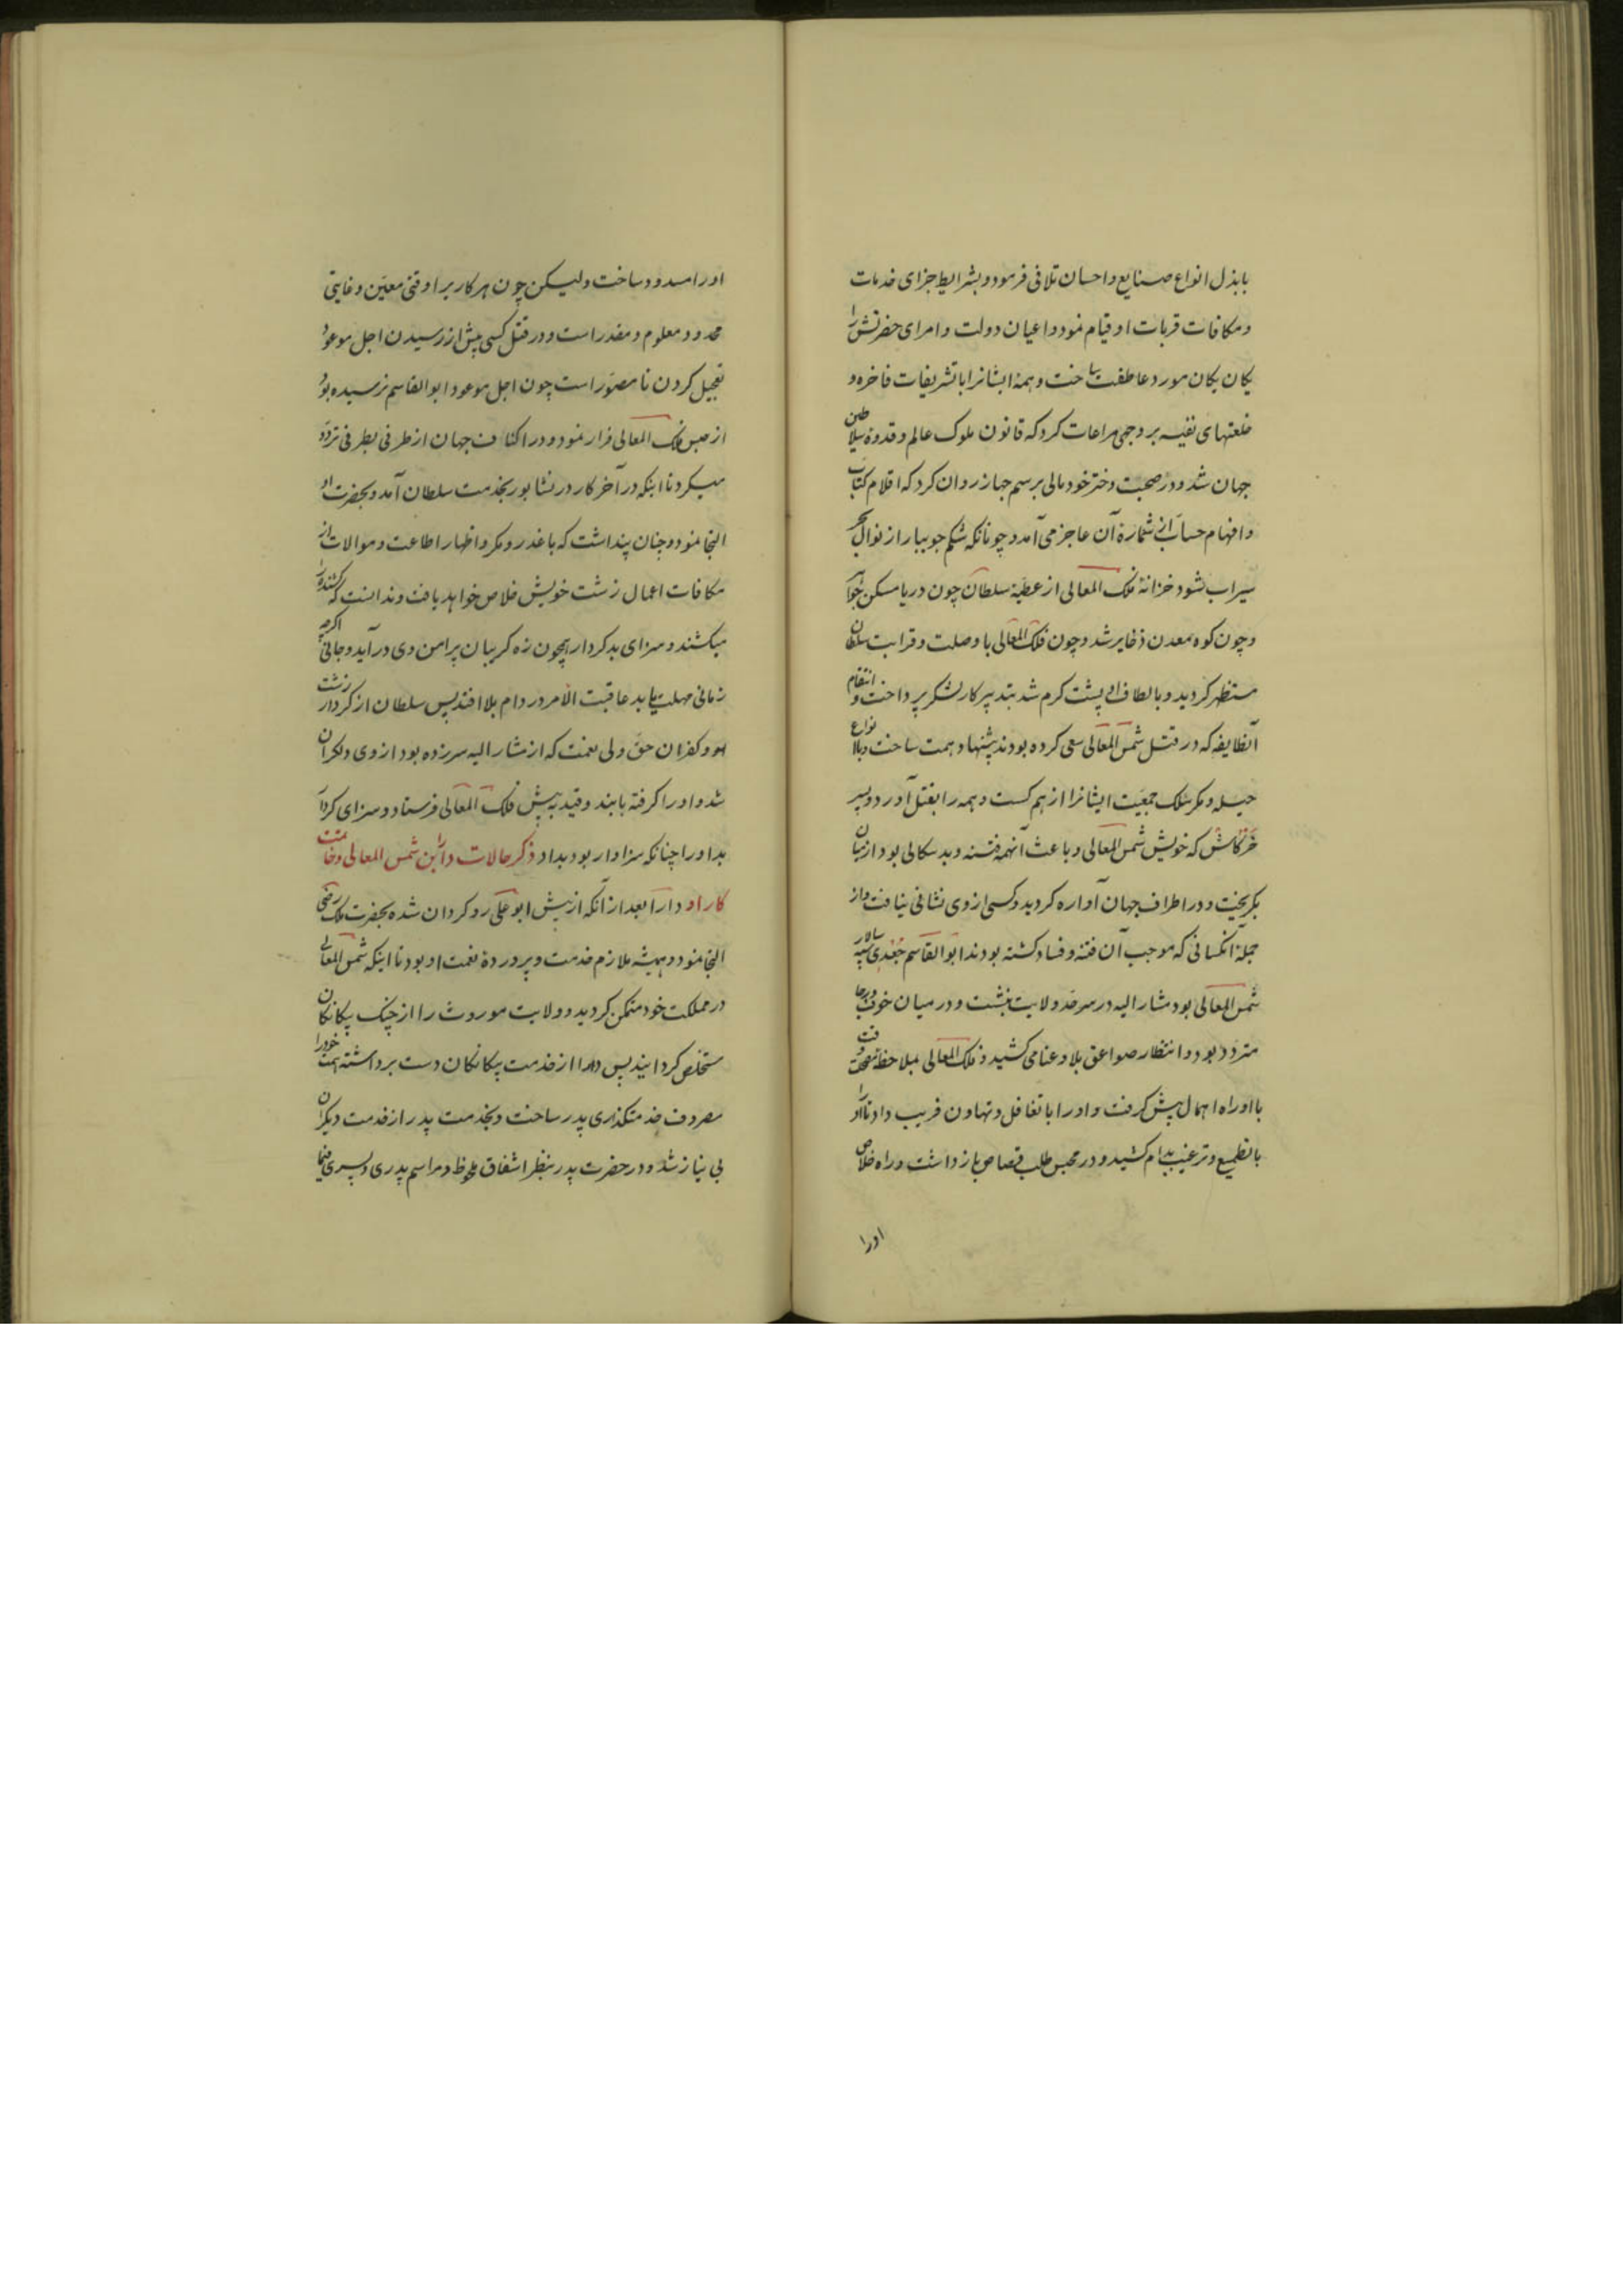 بابذل انواع صنایع و احسان تلافی فرمود و بشرایط جزای خدمات
و مکافات قربات او قیام نمود و اعیان دولت و امرای حضرتش را
یکان یکان مورد عاطفت ساخت و همهٔ ایشانرا با تشریفات فاخره و
خلعتهای نفیسه بر وجهی مراعات کرد که قانون ملوک عالم و قدوهٔ سلاطین
جهان شد و در صحبت دختر خود مالی برسم جهاز روان کرد که اقلام کتاب
و افهام حساب از شمارهٔ آن عاجز می آمد و چونانکه شکم جویبار از نوال بحر
سیراب شود خزانهٔ فلک المعالی از عطیهٔ سلطان چون دریا مسکن جواهر
و چون کوه معدن ذخایر شد و چون فلک المعالی با وصلت و قرابت سلطان
مستظهر کردید و بالطاف او پشت کرم شد بتدبیر کار لشکر پرداخت و انتقام
آنطایفه که در قتل شمس المعالی سعی کرده بودند پیشنهاد همت ساخت و بانواع
حیله و مکر سلک جمعیت ایشانرا از هم کسست و همه را بقتل آورد و پسر
خرکاش که خویش شمس المعالی و باعث آنهمه فتنه و بد سکالی بود از میان
بکریخت و در اطراف جهان آواره کردید و کسی از وی نشانی نیافت و از
جملهٔ آنکسانی که موجب آن فتنه و فساد کشته بودند ابو القاسم جعدی سپه سالار
شمس المعالی بود مشار الیه در سرحد ولایت بنشست و در میان خوف و رجا
متردد بود و انتظار صواعق بلا و عنا می کشید و فلک المعالی بملاحظهٔ مصلحت وقت
با او راه اهمال پیش کرفت و او را با تغافل و تهاون فریب داد تا او را
با تطمیع و ترغیب بدام کشید و در محبس طلب قصاص باز داشت و راه خلاص
اورا
اورا مسدود ساخت ولیکن چون هر کاریرا وقتی معین و غایتی
محدود و معلوم و مقدر است و در قتل کسی پیش از رسیدن اجل موعود
تعجیل کردن نا مصور است چون اجل موعود ابو القاسم نرسیده بود
از حبس فلک المعالی فرار نمود و در اکناف جهان از طرفی بطرفی تردد
میکرد تا اینکه در آخر کار در نشابور بخدمت سلطان آمد و بحضرت او
التجا نمود و چنان پنداشت که با غدر و مکر و اظهار اطاعت و موالات از
مکافات اعمال زشت خویش خلاص خواهد یافت و ندانست که کشنده را
میکشند و سزای بد کردار همچون زه کریبان پیرامن وی در آید و جانی اکرچه
زمانی مهلت یابد عاقبت الامر در دام بلا افتد پس سلطان از کردار زشت
او و کفران حق ولی نعمت که از مشار الیه سرزده بود از وی دلکران
شد و او را کرفته با بند و قید به پیش فلک المعالی فرستاد و سزای کردار
بد او را چنانکه سزاوار بود بداد ذکر حالات دارا بن شمس المعالی و خاتمت
کار او دارا بعد از آنکه از پیش ابو علی رو کردان شده بحضرت ملک رضی
التجا نمود و همیشه ملازم خدمت و پروردهٔ نعمت او بود تا اینکه شمس المعالی
در مملکت خود متمکن کردید و ولایت موروث را از چنک بیکانکان
مستخلص کردانید پس دارا از خدمت بیکانکان دست برداشته همت خود را
مصروف خدمتکذاری پدر ساخت و بخدمت پدر از خدمت دیکران
بی نیاز شد و در حضرت پدر بنظر اشفاق ملحوظ و مراسم پدری و پسری فیما